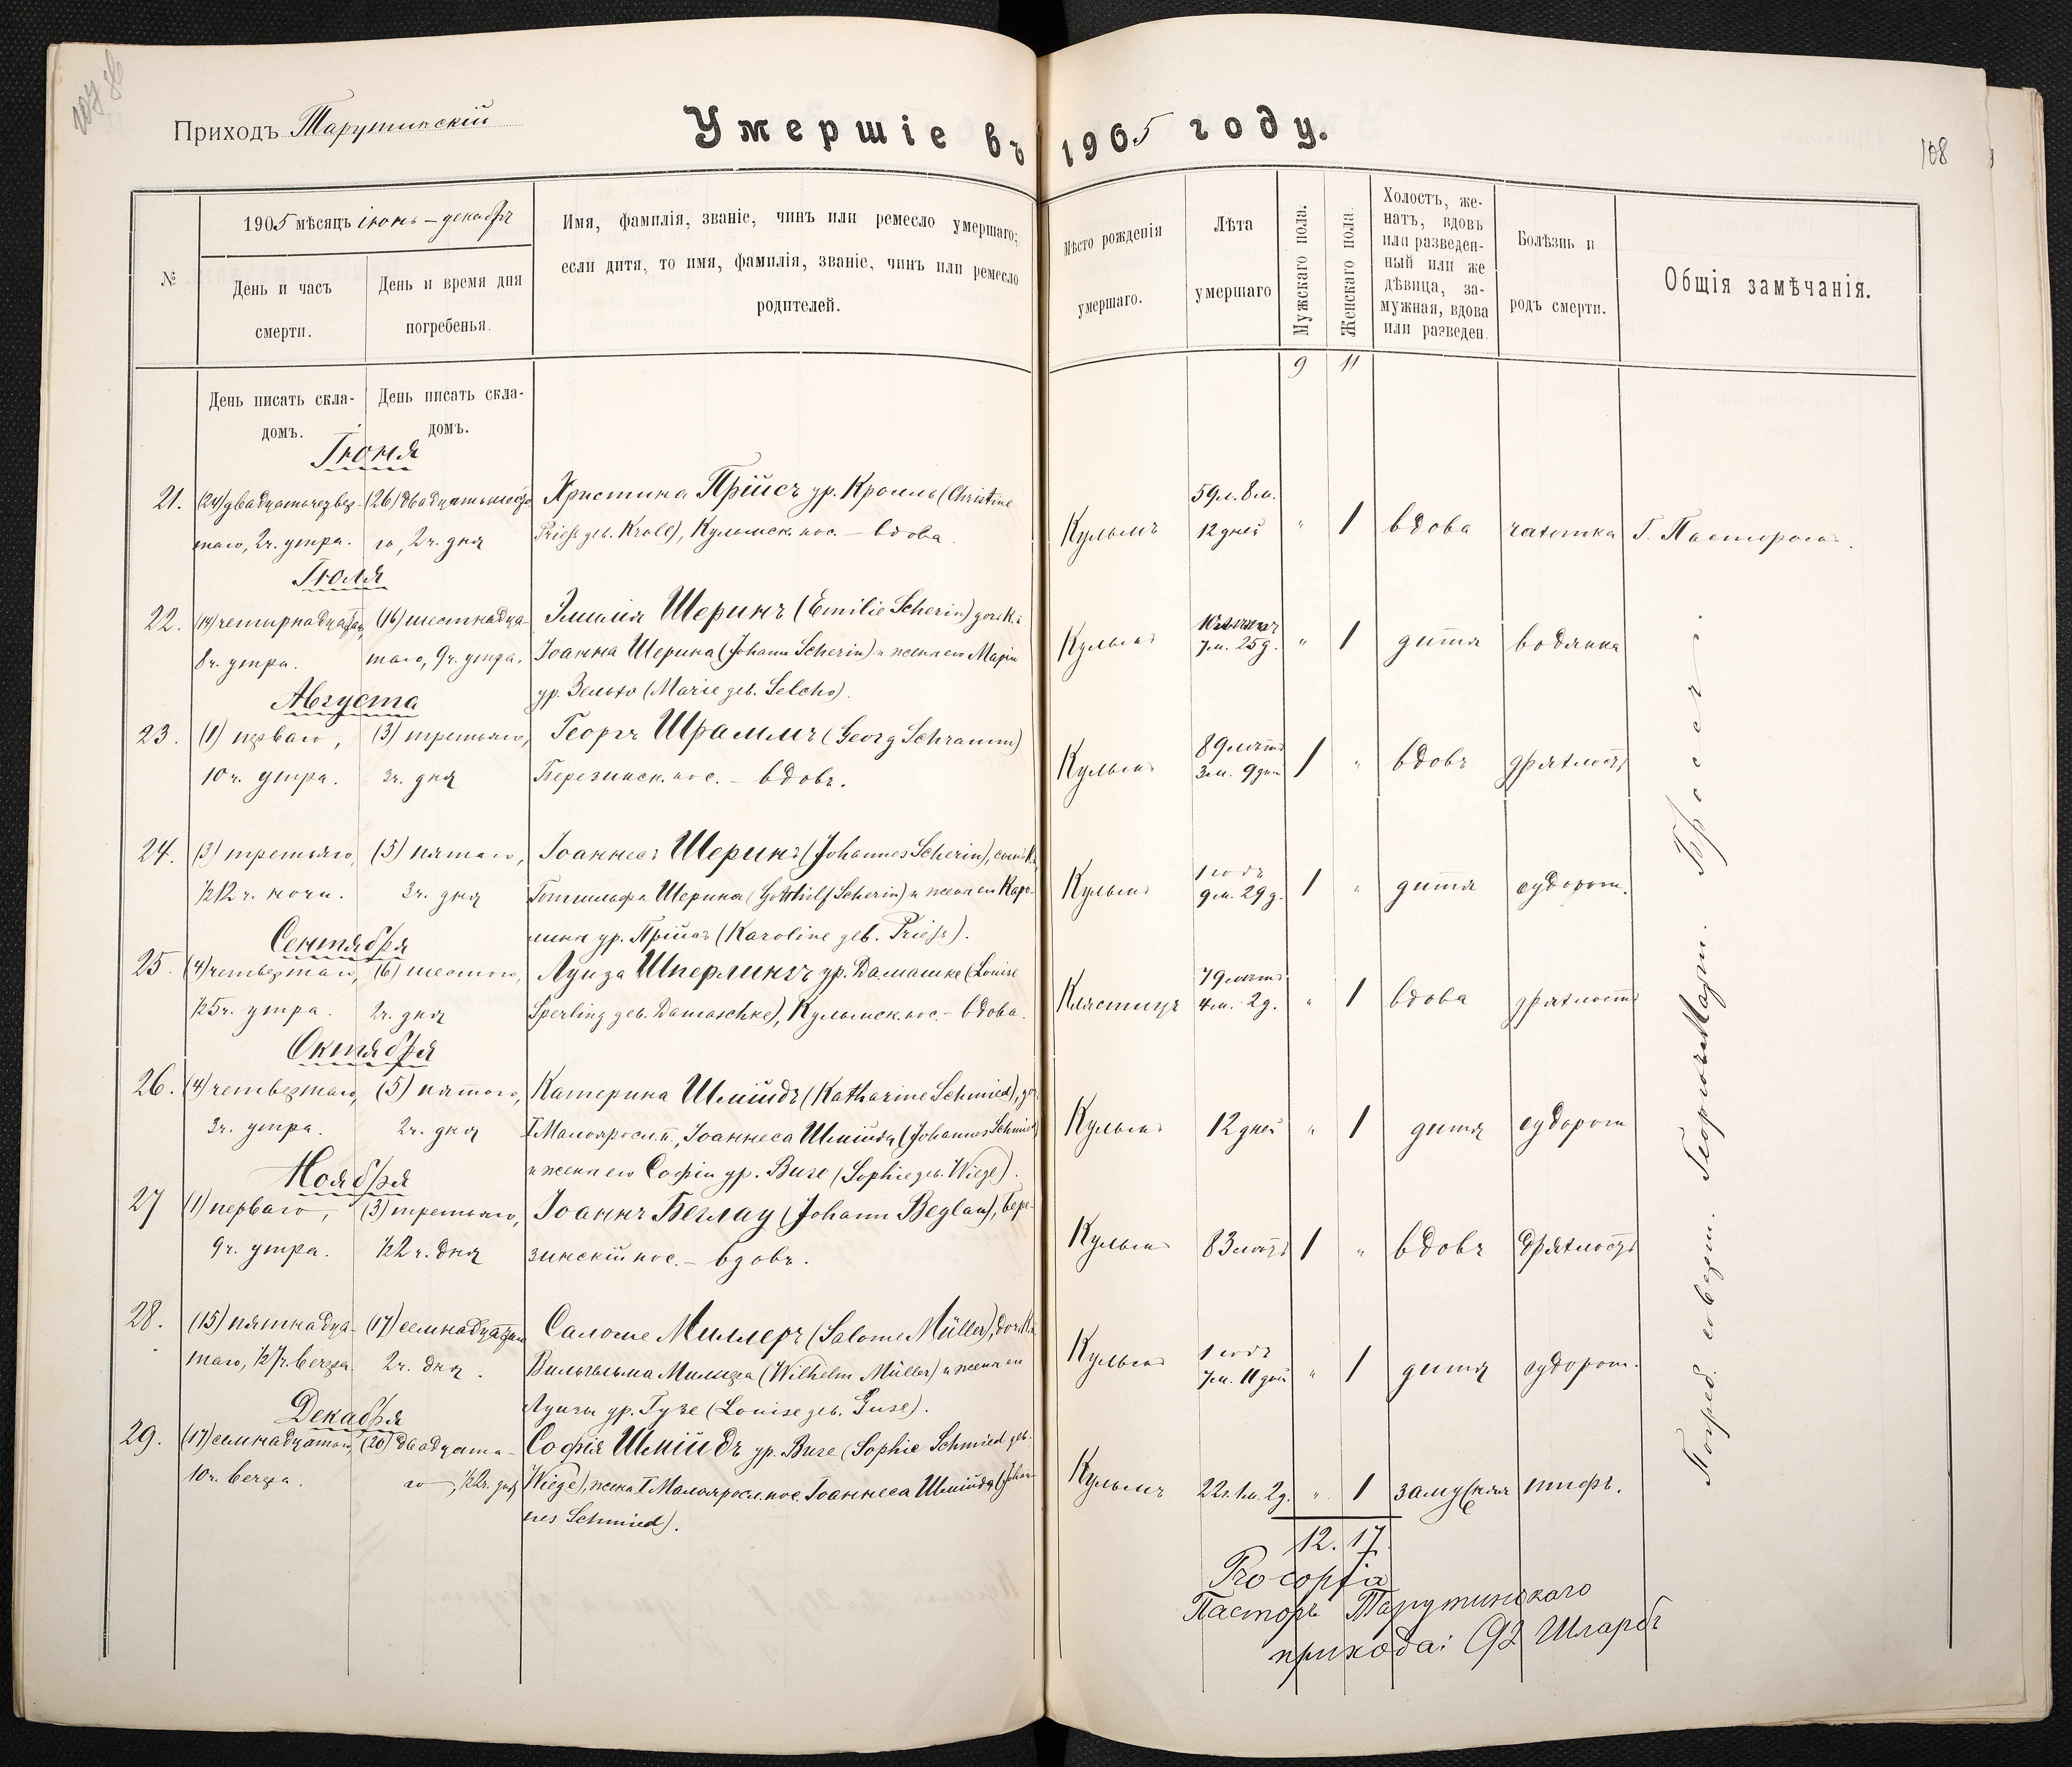 Приходъ Тарутинскій
Умершіе въ 1905 году.
108
№
1905 мѣсяцъ іюнь – декабрь
День и часъ смерти.
День и время дня погребенья.
Имя, фамилія, званіе, чинъ или ремесло умершаго;
если дитя, то имя, фамилія, званіе, чинъ или ремесло
родителей.
Мѣсто рожденія
умершаго.
Лѣта
умершаго
Мужскаго пола.
Женскаго пола
Холостъ, же-
натъ, вдовъ
или разведен-
ный или же
дѣвица, за-
мужная, вдова
или разведен.
Болѣзнь и
родъ смерти.
Общія замѣчанія.
9 11
День писать скла-
домъ.
День писать скла-
домъ.
Іюня
21. (24) двадцатьчетвер- (26) двадцатьшесто Христина Прійсъ ур. Кролль (Christine 59 л. 8 м.
таго, 2 ч. утра. го, 2 ч. дня Priess geb. Kroll), Кульмск. пос. – вдова. Кульмъ 12 дней " 1 вдова чахотка Г. Пастороmъ.
Іюля
22. (14) четырнадцатаго, (16) шестнадца- Эмилія Шеринъ (Emilie Scherin) дочь К.
8 ч. утра. таго, 9 ч. утра. Іоанна Шерина (Johann Scherin) и жены его Маріи Кульмъ 7 м. 25 д. " 1 дитя водянка
ур. Зельхо (Marie geb. Selcho).
Августа
23. (1) перваго, (3) третьяго, Георгъ Шраммъ (Georg Schramm) 89 лѣтъ
10 ч. утра. 3 ч. дня Березинск. пос. – вдовъ. Кульмъ 3 м. 9 дней 1 " вдовъ дряхлость
24. (3) третьяго, (5) пятаго, Іоаннесъ Шеринъ (Johannes Scherin), сынъ К. 1 годъ
½12 ч. ночи. 3 ч. дня Готтильфа Шерина (Gotthilf Scherin) и жены его Каро- Кульмъ 9 м. 29 д. 1 " дитя судорог.
лины ур. Прійсъ (Karoline geb. Priess).
Сентября
25. (4) четвертаго, (6) шестого, Луиза Шперлингъ ур. Дамашке (Louise 79 лѣтъ
½5 ч. утра. 2 ч. дня Sperling geb. Damaschke), Кульмск. пос. – вдова. Клястицъ 4 м. 2 д. " 1 вдова дряхлость
Октября
26. (4) четвертаго, (5) пятого, Катерина Шмійдъ (Katharine Schmied), доч.
3 ч. утра. 2 ч. дня I Малояросл. п., Іоаннеса Шмійда (Johannes Schmied) Кульмъ 12 дней " 1 дитя судорог
и жены его Софіи ур. Виге (Sophie geb. Wiege).
Ноября
27 (1) перваго, (3) третьяго, Іоаннъ Беглау (Johann Beglau), Бере-
9 ч. утра. ½2 ч. дня зинскій пос. – вдовъ. Кульмъ 83 лѣтъ 1 " вдовъ дряхлость
28. (15) пятнадца- (17) семнадцатаго Саломе Миллеръ (Salome Müller), дочь К. 1 годъ
таго, ½7 ч. вечера. 2 ч. дня. Вильгельма Милера (Wilhelm Müller) и жены его Кульмъ 7 м. 11 дней " 1 дитя судорог.
Луизы ур. Гузе (Louise geb. Guse).
Декабря
29. (17) семнадцатаго, (20) двадцата- Софія Шмійдъ ур. Виге (Sophie Schmied geb.
10 ч. вечера. го, ½2 ч. дня Wiege), жена I Малояросл. пос. Іоаннеса Шмійда (Johan- Кульмъ 22 г. 1 м. 2 д. " 1 замужняя тифъ.
nes Schmied).
12. 17.
Pro copia
Пасторъ Тарутинскаго
прихода:
Погреб. соверш.